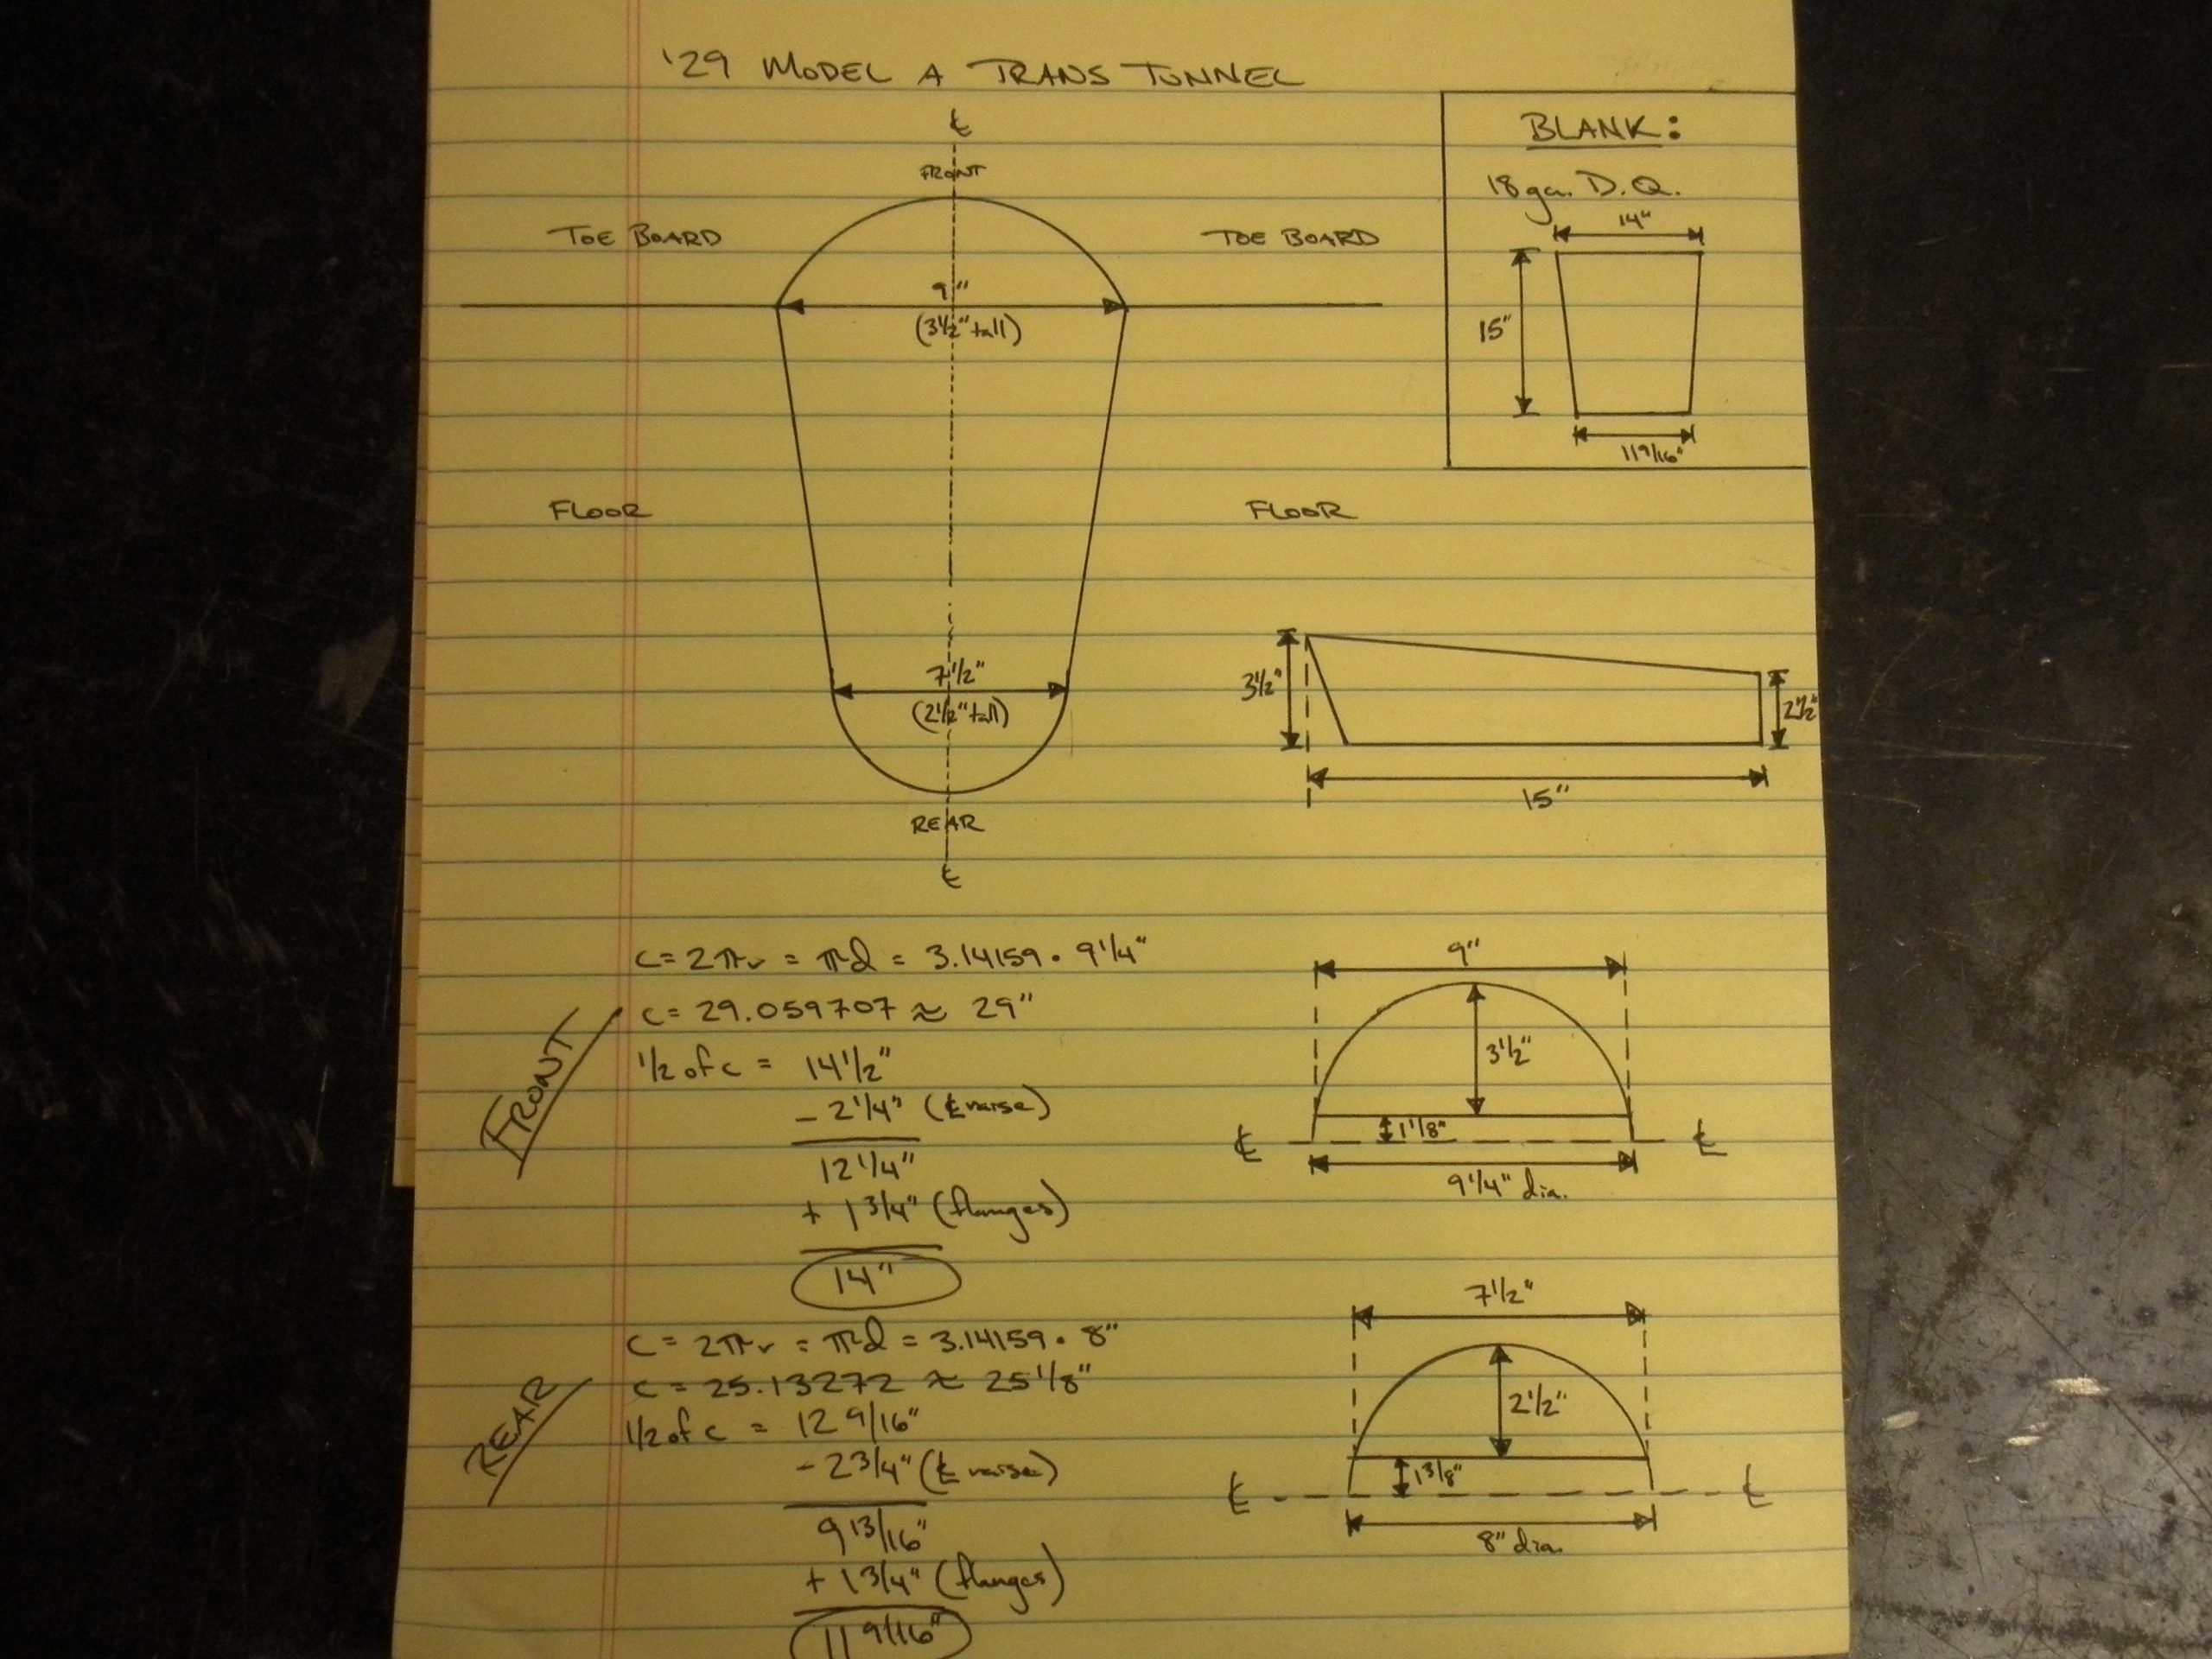 '29 MODEL A TRANS TUNNEL
℄
FRONT
TOE BOARD
TOE BOARD
9"
(3 1/2" tall)
FLOOR
FLOOR
7 1/2"
(2 1/2" tall)
REAR
℄
BLANK:
18 ga. D.Q.
14"
15"
11 9/16"
3 1/2"
2 1/2"
15"
FRONT
c = 2πr = πd = 3.14159 · 9 1/4"
c = 29.059707 ≈ 29"
1/2 of c = 14 1/2"
- 2 1/4" (℄ raise)
12 1/4"
+ 1 3/4" (flanges)
14"
9"
3 1/2"
1 1/8"
℄ ℄
9 1/4" dia.
REAR
c = 2πr = πd = 3.14159 · 8"
c = 25.13272 ≈ 25 1/8"
1/2 of c = 12 9/16"
- 2 3/4" (℄ raise)
9 13/16"
+ 1 3/4" (flanges)
11 9/16"
7 1/2"
2 1/2"
1 3/8"
℄ ℄
8" dia.